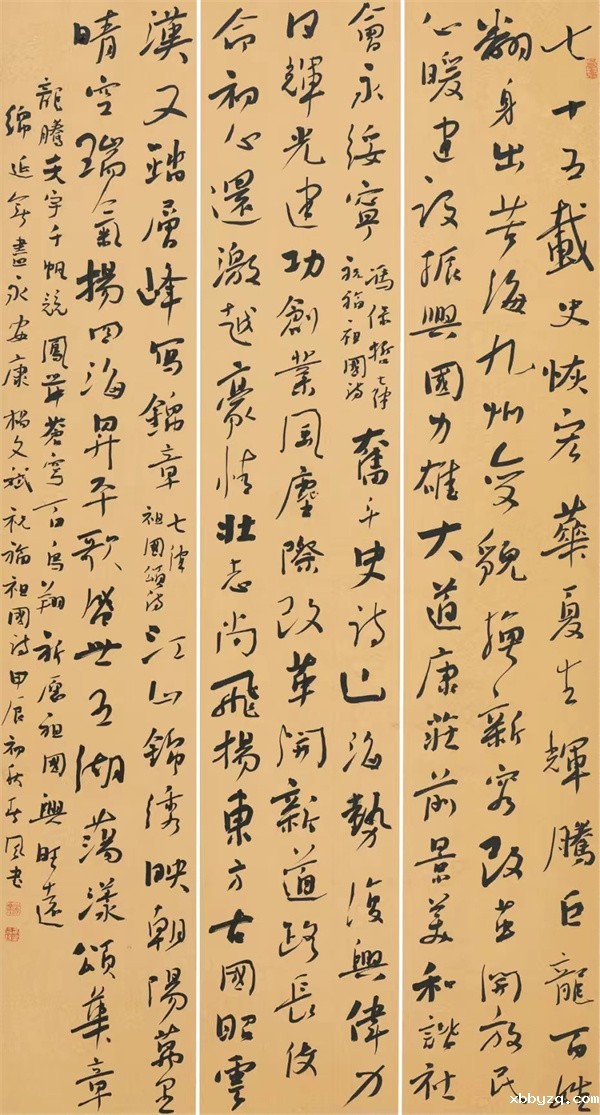 七十五載史恢宏華夏生輝騰巨龍百姓
翻身出苦海九州變貌換新容改革開放民
心暖建設振興國力雄大道康莊前景美和諧社
會永綏寧
馮保哲七律
祝福祖國詩
奮斗史詩山海勢復興偉力
日輝光建功創業風塵際改革開新道路長使
命初心還激越豪情壯志尚飛揚東方古國昭雲
漢又踏層峰寫錦章
七律
祖國頌詩
江山錦綉映朝陽萬里
晴空瑞氣揚四海昇平歌盛世五湖蕩漾頌華章
龍騰天宇千帆競鳳舞蒼穹百鳥翔祈愿祖國興旺遠
綿延無盡永安康楊文斌祝福祖國詩甲辰初秋春風书
xbbyzq.com